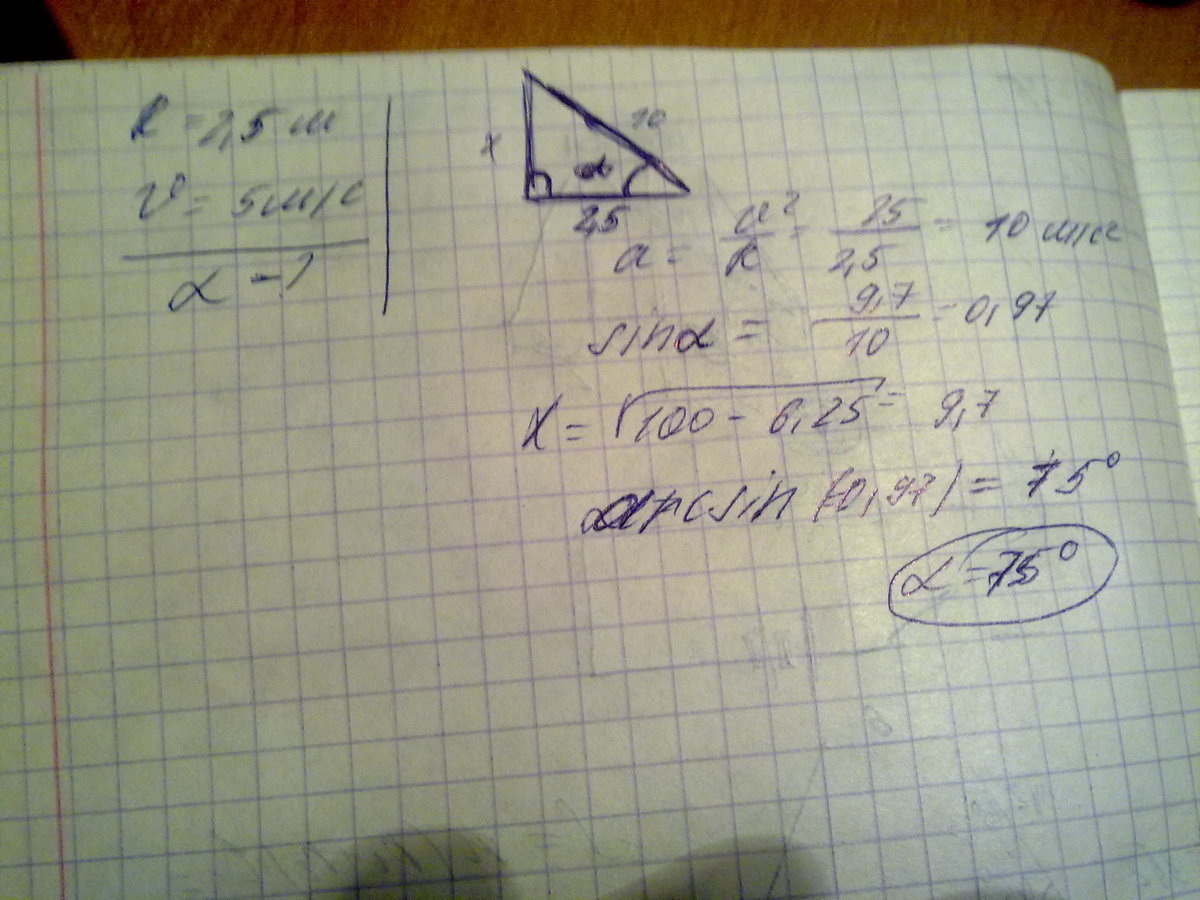 R = 2,5 м
v = 5 м/с
α - ?
x
10
α
2,5
a = v²/R = 25/2,5 = 10 м/с
sinα = 9,7/10 = 0,97
x = √100 - 6,25 = 9,7
αarcsin (0,97) = 75°
α = 75°